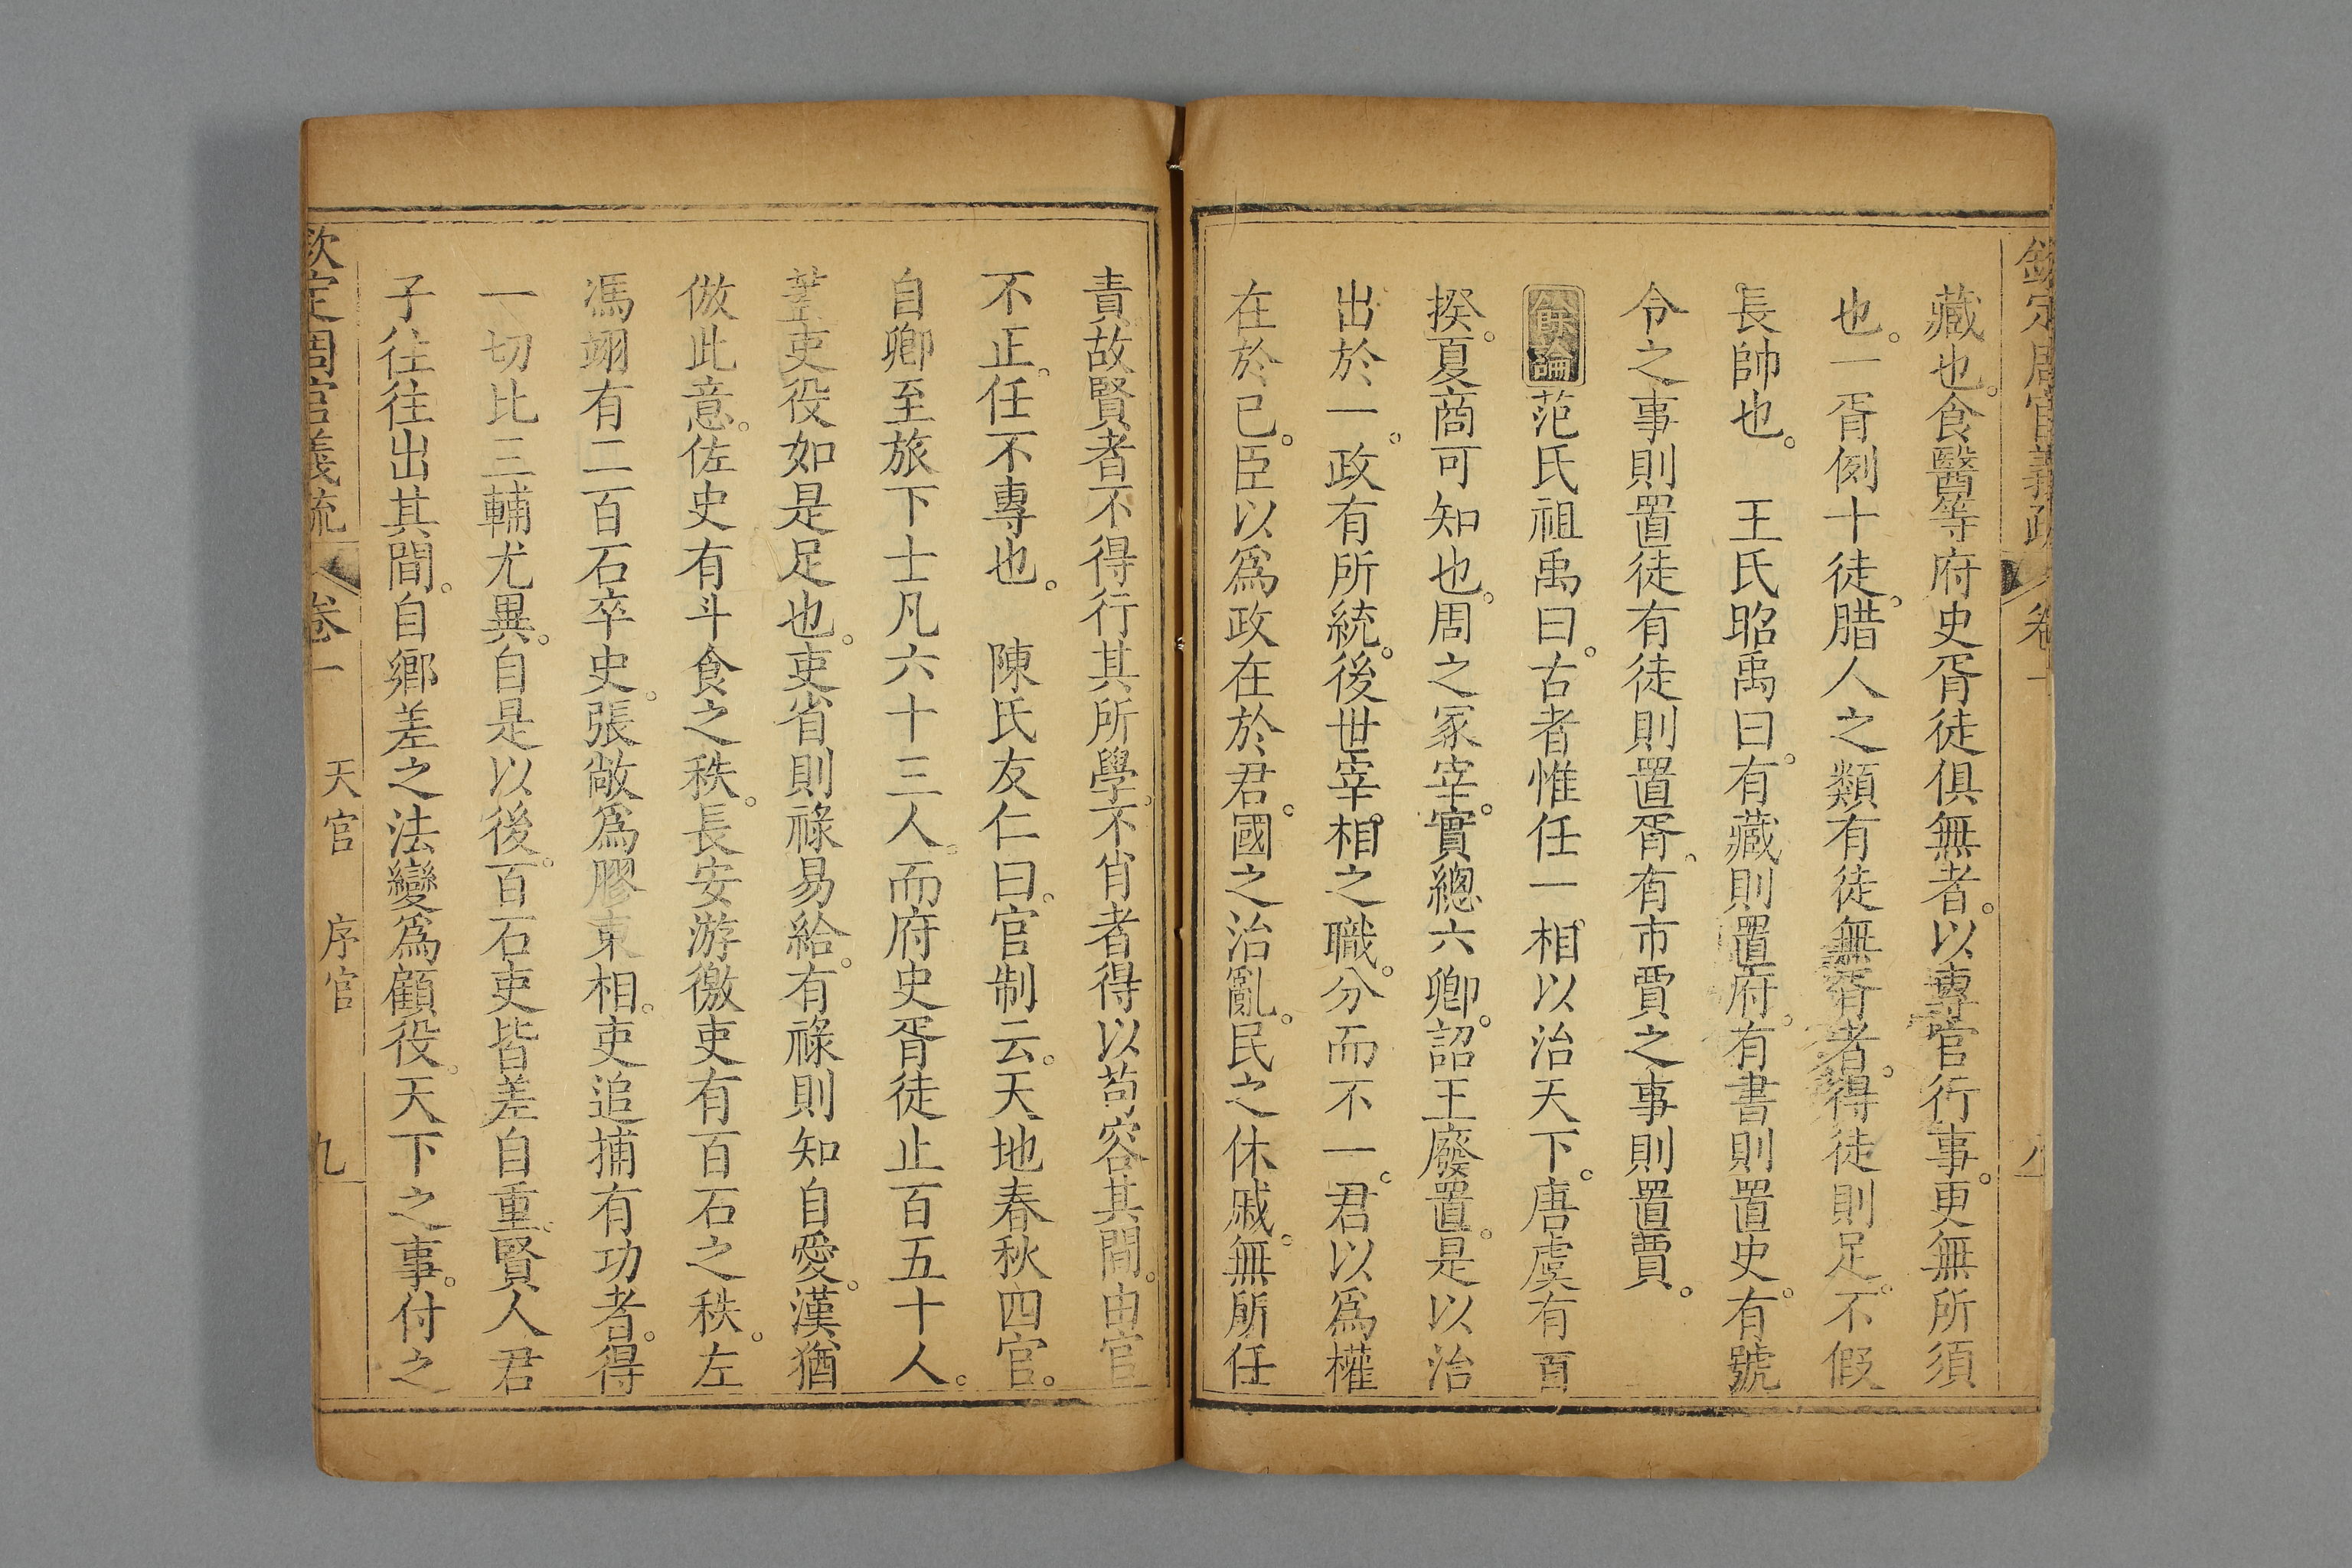 欽定周官義疏 卷一
藏也。食醫等府史胥徒俱無者。以專官行事。更無所須
也。一胥例十徒。腊人之類有徒無胥者。得徒則足。不假
長帥也。 王氏昭禹曰。有藏則置府。有書則置史。有號
令之事則置徒有徒則置胥。有市賈之事則置賈。
餘論范氏祖禹曰。古者惟任一相以治天下。唐虞有百
揆。夏商可知也。周之冢宰。實總六卿。詔王廢置。是以治
出於一。政有所統。後世宰相之職。分而不一。君以爲權
在於已。臣以爲政在於君。國之治亂。民之休戚。無所任
責故賢者不得行其所學。不肖者得以苟容其間。由官
不正。任不專也。 陳氏友仁曰。官制云。天地春秋四官。
自卿至旅下士凡六十三人。而府史胥徒止百五十人。
葢吏役如是足也。吏省則祿易給。有祿則知自愛。漢猶
倣此意。佐史有斗食之秩。長安游徼吏有百石之秩。左
馮翊有二百石卒史。張敞爲膠東相。吏追捕有功者。得
一切比三輔尤異。自是以後。百石吏皆差自重。賢人君
子往往出其間。自鄉差之法變爲顧役。天下之事。付之
欽定周官義疏 卷一 天官 序官 九